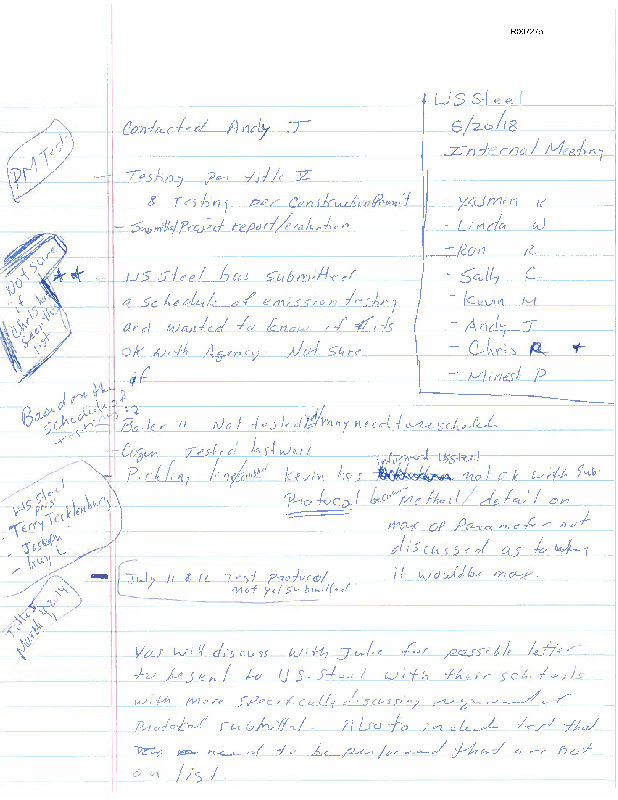 R007275
US Steel
6/20/18
Internal Meeting
Yasmin K
- Linda W
- Ron R.
- Sally C.
- Kevin M
- Andy J
- Chris R *
- Minesh P
Contacted Andy J
PM Test
- Testing per title V
& Testing per Construction Permit
- Submittal Project report/evaluation
Not Sure
if
Chris
list
**
US Steel has submitted
a schedule of emission testing
and wanted to know if its
OK with Agency Not sure
if
Based on the
schedule of
testing:?
Boiler 11 Not tested may need to reschedule
Tested last week
Pickling line Kevin has informed US Steel not ok with sub.
Protocol because method/detail on
max op Parameter not
discussed as to
it would be max.
US Steel
- Terry Tecklenburg
- Joseph
July 11 & 12 Test protocol
not yet submitted
March 4, 2014
Yas will discuss with Julie for possible letter
to be sent to U.S. Steel with their sch. tests
with more specifically discussing
Protocol submittal. Also to include test that
need to be performed that are not
on list.